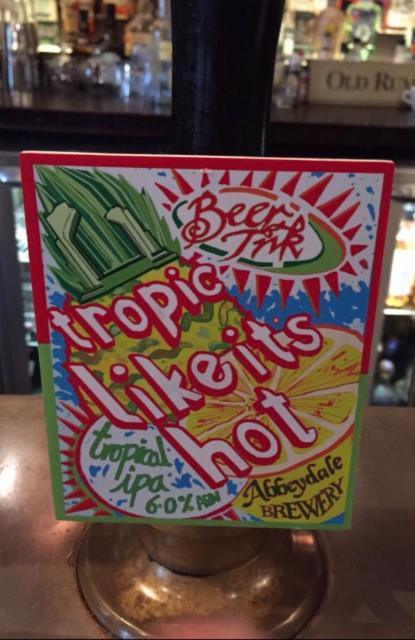 OLD RU
11
Beer
& Ink
tropic
like its
hot
tropical
ipa
6.0% ABV
Abbeydale
BREWERY